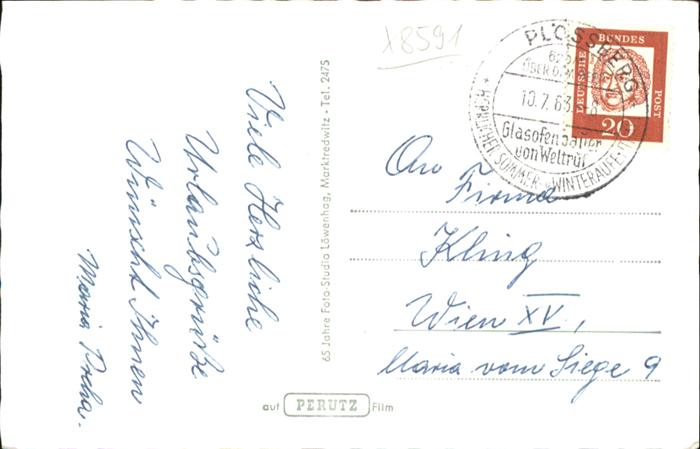 Viele Herzliche
Urlaubsgrüße
Wünscht Ihnen
Maria
65 Jahre Foto-Studio Löwenhag, Marktredwitz - Tel. 2475
auf PERUTZ Film
18591
PLÖSSBERG
10.7.63
Glasofenbauer
von Weltruf
SOMMER - U. WINTERAUFENTH
DEUTSCHE BUNDESPOST
20
An
Firma
Kling
Wien XV,
Maria vom Siege 9